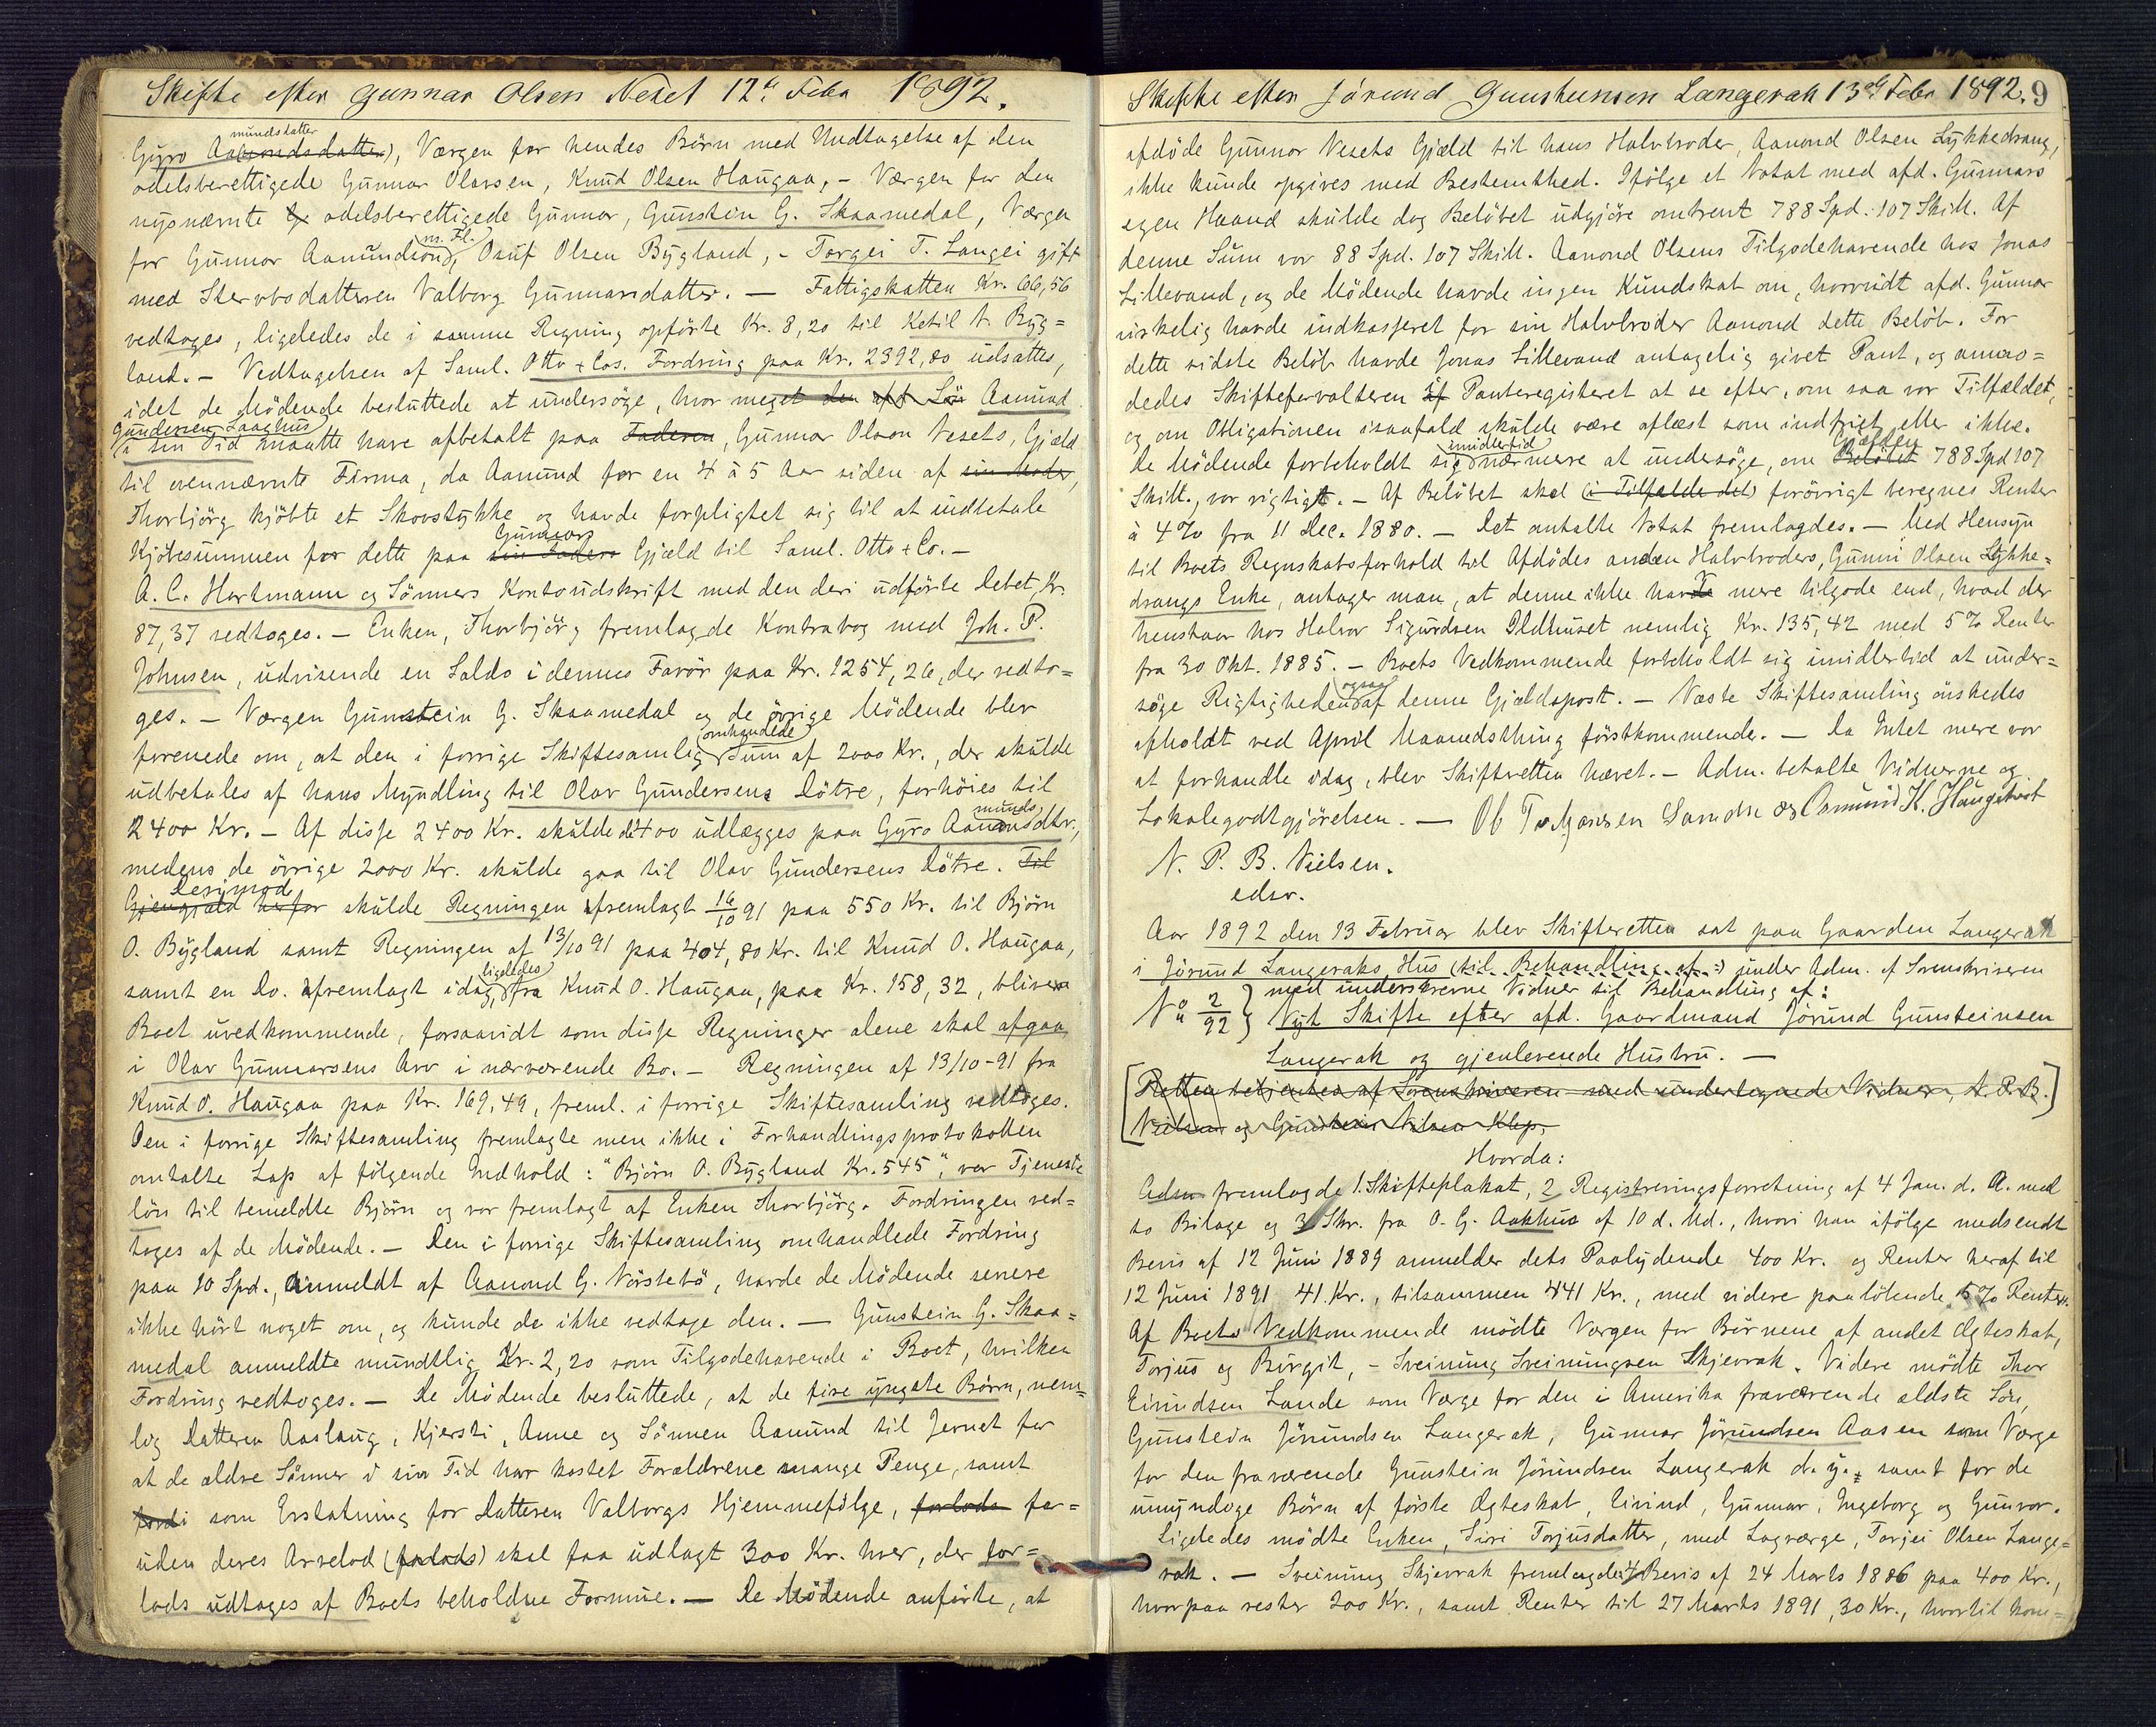 Skifte efter Gunnar Olsen Neset 12te Febr 1892.
mundsdatter
Gyro Aa(mondsdatter), Værgen for hendes Børn med Undtagelse af den
odelsberettigede Gunnar Olavsen, Knud Olsen Haugaa, - Værgen for den
nysnævnte odelsberettigede Gunnar, Gunstein G. Skaamedal, Værgen
m. Fl.
for Gunnar Aamundsøn, Osuf Olsen Bygland, - Torgei T. Langei gift
med Stervbodatteren Valborg Gunnarsdatter. — Fattigskatten Kr. 66,56
vedtoges, ligeledes de i samme Regning opførte Kr. 8,20 til Ketil A. Byg=
land. - Vedtagelsen af Saml. Otto & Cos. Fordring paa Kr. 2392,80 udsattes,
idet de Mødende besluttede at undersøge, hvor meget den afd Søn Aamund
Gundersen Laaghus
i sin Tid maatte have afbetalt paa Faderen, Gunnar Olson Nesets, Gjæld
til ovennævnte Firma, da Aamund for en 4 à 5 Aar siden af sin Moder,
Thorbjørg kjøbte et Skovstykke og havde forpligtet sig til at indbetale
Gunnars
Kjøbesummen for dette paa sin Faders Gjæld til Saml. Otto & Co. —
A. C. Hartmann og Sønners Kontoudskrift med den deri udførte Debet, Kr.
87,37 vedtoges. - Enken, Thorbjørg fremlagde Kontrabog med Joh. P.
Johnsen, udvisende en Saldo i dennes Favør paa Kr. 1254,26, der vedto=
ges. - Værgen Gunstein G. Skaamedal og de øvrige Mødende blev
omhandlede
forenede om, at den i forrige Skiftesamlig Sum af 2000 Kr., der skulde
udbetales af hans Myndling til Olav Gundersens Døtre, forhøies til
2400 Kr. - Af disse 2400 Kr. skulde de 400 udlægges paa Gyro Aamundsdtr.,
medens de øvrige 2000 Kr. skulde gaa til Olav Gundersens Døtre. Til
Derimod
Gjengjæld herfor skulde Regningen fremlagt 16/10 91 paa 550 Kr. til Bjørn
O. Bygland samt Regningen af 13/10 91 paa 404,80 Kr. til Knud O. Haugaa,
ligeledes
samt en Do. fremlagt idag fra Knud O. Haugaa, paa Kr. 158,32, blive
Boet uvedkommende, forsaavidt som disse Regninger alene skal afgaa
i Olav Gunnarsens Arv i nærværende Bo. - Regningen af 13/10-91 fra
Knud O. Haugaa paa Kr. 169,49, freml. i forrige Skiftesamling vedtoges.
Den i forrige Skiftesamling fremlagte men ikke i Forhandlingsprotokollen
omtalte Lap af følgende Indhold: "Bjørn O. Bygland Kr. 545", var Tjeneste
løn til bemeldte Bjørn og var fremlagt af Enken Thorbjørg. Fordringen ved=
toges af de Mødende. - Den i forrige Skiftesamling omhandlede Fordring
paa 10 Spd., anmeldt af Aanond G. Nørstebø, havde de Mødende senere
ikke hørt noget om, og kunde da ikke vedtage den. — Gunstein G. Skaa=
medal anmeldte mundtlig Kr. 2,20 som Tilgodehavende i Boet, hvilken
Fordring vedtoges. - De Mødende besluttede, at de fire yngste Børn, nem=
lig Datteren Aaslaug, Kjersti, Anne og Sønnen Aamund til Jevnet for
at de ældre Sønner i sin Tid har kostet Forældrene mange Penge, samt
fordi som Erstatning for Datteren Valborgs Hjemmefølge, forlods for=
uden deres Arvelod (forlods) skal faa udlagt 300 Kr. hver, der for=
lods udtages af Boets beholdne Formue. — De Mødende anførte, at
Skifte efter Jørund Gunsteinsen Langerak 13de Febr 1892. 9
afdøde Gunnar Nesets Gjæld til hans Halvbroder, Aanond Olsen Lykkedrang,
ikke kunde opgives med Bestemthed. Ifølge et Notat med afd. Gunnars
egen Haand skulde dog Beløbet udgjøre omtrent 788 Spd. 107 Skill. Af
denne Sum var 88 Spd. 107 Skill. Aanond Olsens Tilgodehavende hos Jonas
Lillevand, og de Mødende havde ingen Kundskab om, hvorvidt afd. Gunnar
virkelig havde indkasseret for sin Halvbroder Aanond dette Beløb. For
dette sidste Beløb havde Jonas Lillevand antagelig givet Pant, og anmo=
dedes Skifteforvalteren if Panteregisteret at se efter, om saa var Tilfældet,
og om Obligationen isaafald skulde være aflæst som indfriet eller ikke.
imidlertid Gjælden
De Mødende forbeholdt sig nærmere at undersøge, om Beløbet 788 Spd 107
Skill., var rigtigt. - Af Beløbet skal (i Tilfælde det) forøvrigt beregnes Renter
à 4% fra 11 Dec. 1880. - Det omtalte Notat fremlagdes. - Med Hensyn
til Boets Regnskabsforhold til Afdødes anden Halvbroders, Gunni Olsen Lykke=
drangs Enke, antager man, at denne ikke har mere tilgode end, hvad der
henstaar hos Halvor Sigurdsen Ildhuset nemlig Kr. 135,42 med 5% Renter
fra 30 Okt. 1885. - Boets Vedkommende forbeholdt sig imidlertid at under=
ogsaa
søge Rigtigheden af denne Gjældspost. - Næste Skiftesamling ønskedes
afholdt ved April Maanedsthing førstkommende. - Da Intet mere var
at forhandle idag, blev Skifteretten hævet. - Adm. betalte Vidnerne og
Lokalegodtgjørelsen. — Osmund K. Haugetveit
N. P. B. Nielsen.
edsv.
Aar 1892 den 13 Februar blev Skifteretten sat paa Gaarden Langerak
i Jørund Langeraks Hus (til Behandling af:) under Adm. af Sorenskriveren
med underskrevne Vidner til Behandling af:
No 2/92 } Nyt Skifte efter afd. Gaardmand Jørund Gunsteinsen
Langerak og gjenlevende Hustru. —
[Retten betjentes af Sorenskriveren med undertegnede Vidner, N. P. B.
Nielsen og Gunstein Nilsen Klep.]
Hvorda:
Adm fremlagde 1. Skifteplakat, 2 Registreringsforretning af 4 Jan. d. A. med
to Bilage og 3 Skr. fra O. G. Aakhus af 10 d. Md., hvori han ifølge medsendt
Bevis af 12 Juni 1889 anmelder dets Paalydende 400 Kr. og Renter heraf til
12 Juni 1891 41 Kr., tilsammen 441 Kr., med videre paaløbende 5% Renter.
Af Boets Vedkommende mødte Værgen for Børnene af andet Ægteskab,
Torjus og Birgit, - Sveinung Sveinungsen Skjevrak. Videre mødte Thor
Eivindsen Lande som Værge for den i Amerika fraværende ældste Søn,
Gunstein Jørundsen Langerak, Gunnar Jørundsen Aasen som Værge
for den fraværende Gunstein Jørundsen Langerak d. y. samt for de
umyndige Børn af første Ægteskab, Eivind, Gunnar, Ingeborg og Gunvor.
Ligeledes mødte Enken, Siri Torjusdatter, med Lagværge, Torjei Olsen Lange=
rak. - Sveinung Skjevrak fremlagde 4 Bevis af 24 Marts 1886 paa 400 Kr.,
hvorpaa rester 200 Kr., samt Renter til 27 Marts 1891, 30 Kr., hvortil kom=